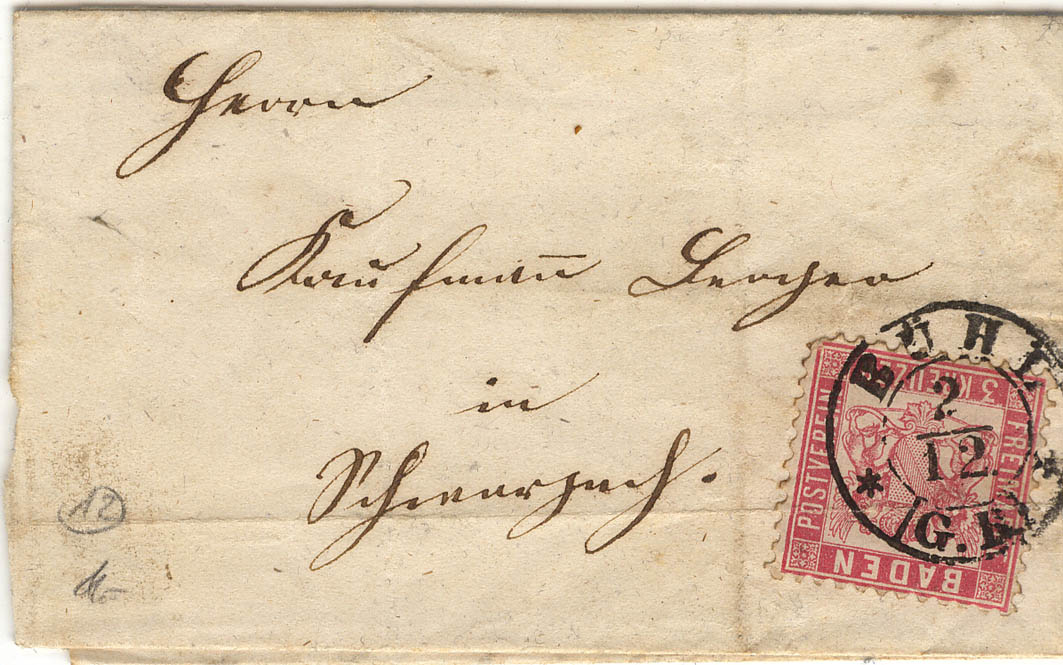 Herrn
Kaufmann Berger
in
Schwarzach.
BÜHL
2
12.
G.E.
3 KREUZER
FREIMARKE
POSTVEREIN
BADEN
12